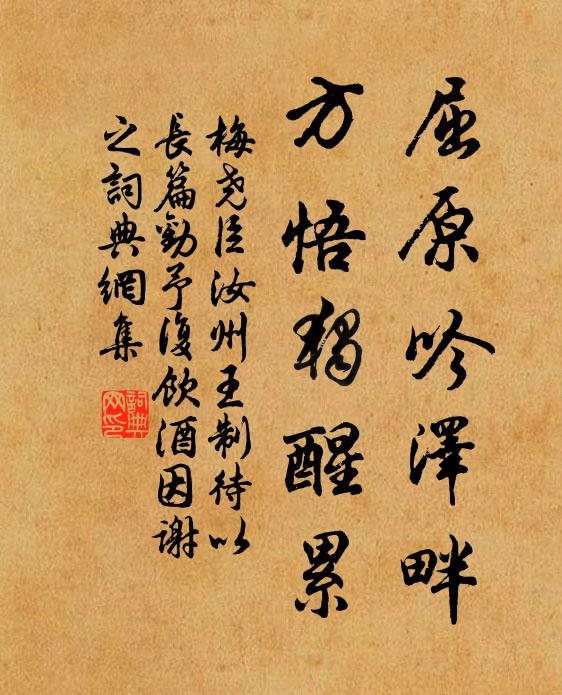 屈原吟澤畔
方悟獨醒累
梅尭臣汝州王制待以
長篇勸予復飲酒因謝
之詞典網集
詞典
网印